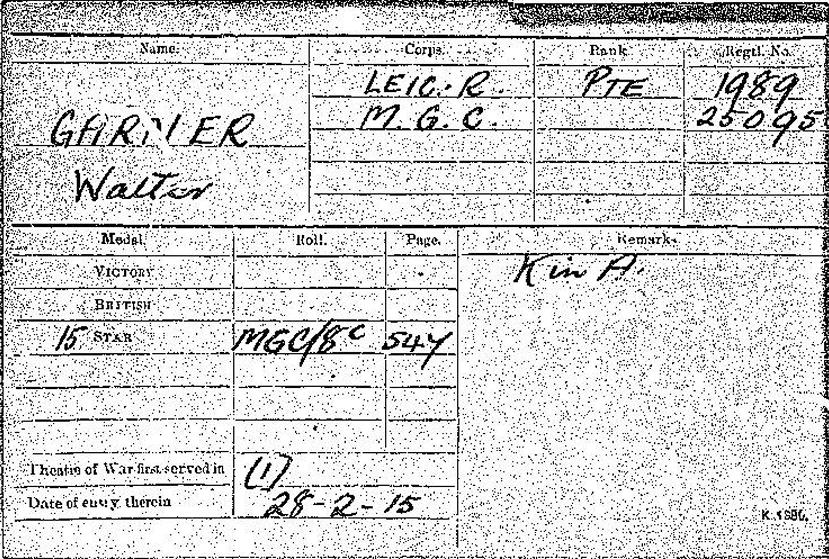 Name. Corps. Rank Regtl. No.
LEIC. R. PTE 1989
GARNER M. G. C. 25095
Walter
Medal. Roll. Page. Remarks
VICTORY Kin A.
BRITISH
15 STAR MGC/8C 547
Theatre of War first served in (1)
Date of entry therein 28-2-15
K. 1380.